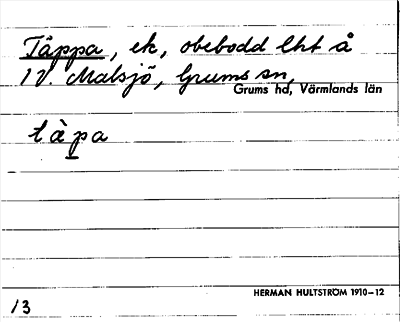 Täppa, ek, obebodd lht å
IV. Malsjö, Grums sn,
Grums hd, Värmlands län
tàpa
HERMAN HULTSTRÖM 1910–12
13